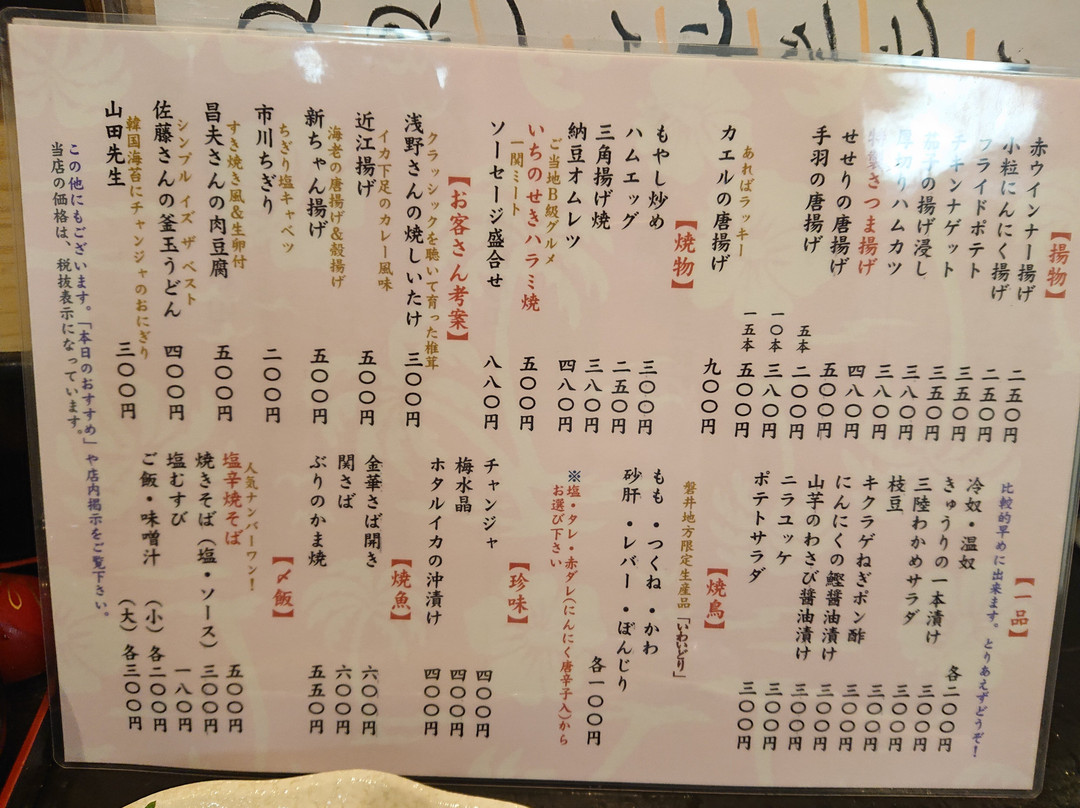 【揚物】
赤ウインナー揚げ 二五〇円
小粒にんにく揚げ 二五〇円
フライドポテト 三五〇円
チキンナゲット 三五〇円
茄子の揚げ浸し 三八〇円
厚切りハムカツ 三八〇円
特製さつま揚げ 四八〇円
せせりの唐揚げ 五〇〇円
手羽の唐揚げ 五本 二〇〇円
一〇本 三八〇円
一五本 五〇〇円
あればラッキー
カエルの唐揚げ 九〇〇円
【焼物】
もやし炒め 三〇〇円
ハムエッグ 二五〇円
三角揚げ焼 三八〇円
納豆オムレツ 四八〇円
ご当地B級グルメ
いちのせきハラミ焼 五〇〇円
一関ミート
ソーセージ盛合せ 八八〇円
【お客さん考案】
クラッシックを聴いて育った椎茸
浅野さんの焼しいたけ 三〇〇円
イカ下足のカレー風味
近江揚げ 五〇〇円
海老の唐揚げ&殻揚げ
新ちゃん揚げ 五〇〇円
ちぎり塩キャベツ
市川ちぎり 二〇〇円
すき焼き風&生卵付
昌夫さんの肉豆腐 五〇〇円
シンプル イズ ザ ベスト
佐藤さんの釜玉うどん 四〇〇円
韓国海苔にチャンジャのおにぎり
山田先生 三〇〇円
【一品】
比較的早めに出来ます。とりあえずどうぞ!
冷奴・温奴 各二〇〇円
きゅうりの一本漬け 三〇〇円
三陸わかめサラダ 三〇〇円
枝豆 三〇〇円
キクラゲねぎポン酢 三〇〇円
にんにくの鰹醤油漬け 三〇〇円
山芋のわさび醤油漬け 三〇〇円
ニラユッケ 三〇〇円
ポテトサラダ 三〇〇円
【焼鳥】
磐井地方限定生産品「いわいどり」
もも・つくね・かわ
砂肝・レバー・ぼんじり
各一〇〇円
※塩・タレ・赤ダレ(にんにく唐辛子入)から
お選び下さい
【珍味】
チャンジャ 四〇〇円
梅水晶 四〇〇円
ホタルイカの沖漬け 四〇〇円
【焼魚】
金華さば開き 六〇〇円
関さば 六〇〇円
ぶりのかま焼 五五〇円
【〆飯】
人気ナンバーワン!
塩辛焼そば 五〇〇円
焼きそば(塩・ソース) 三〇〇円
塩むすび 一八〇円
ご飯・味噌汁 (小)各二〇〇円
(大)各三〇〇円
この他にもございます。「本日のおすすめ」や店内掲示をご覧下さい。
当店の価格は、税抜表示になっています。